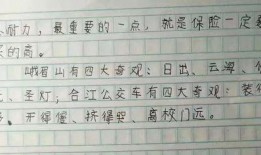 耐力，最重要的一点，就是保险一定
的高。
峨眉山有四大奇观：日出、云海、
、圣灯；合江公交车有四大奇观：装
、开得慢、挤得
、离校门远。